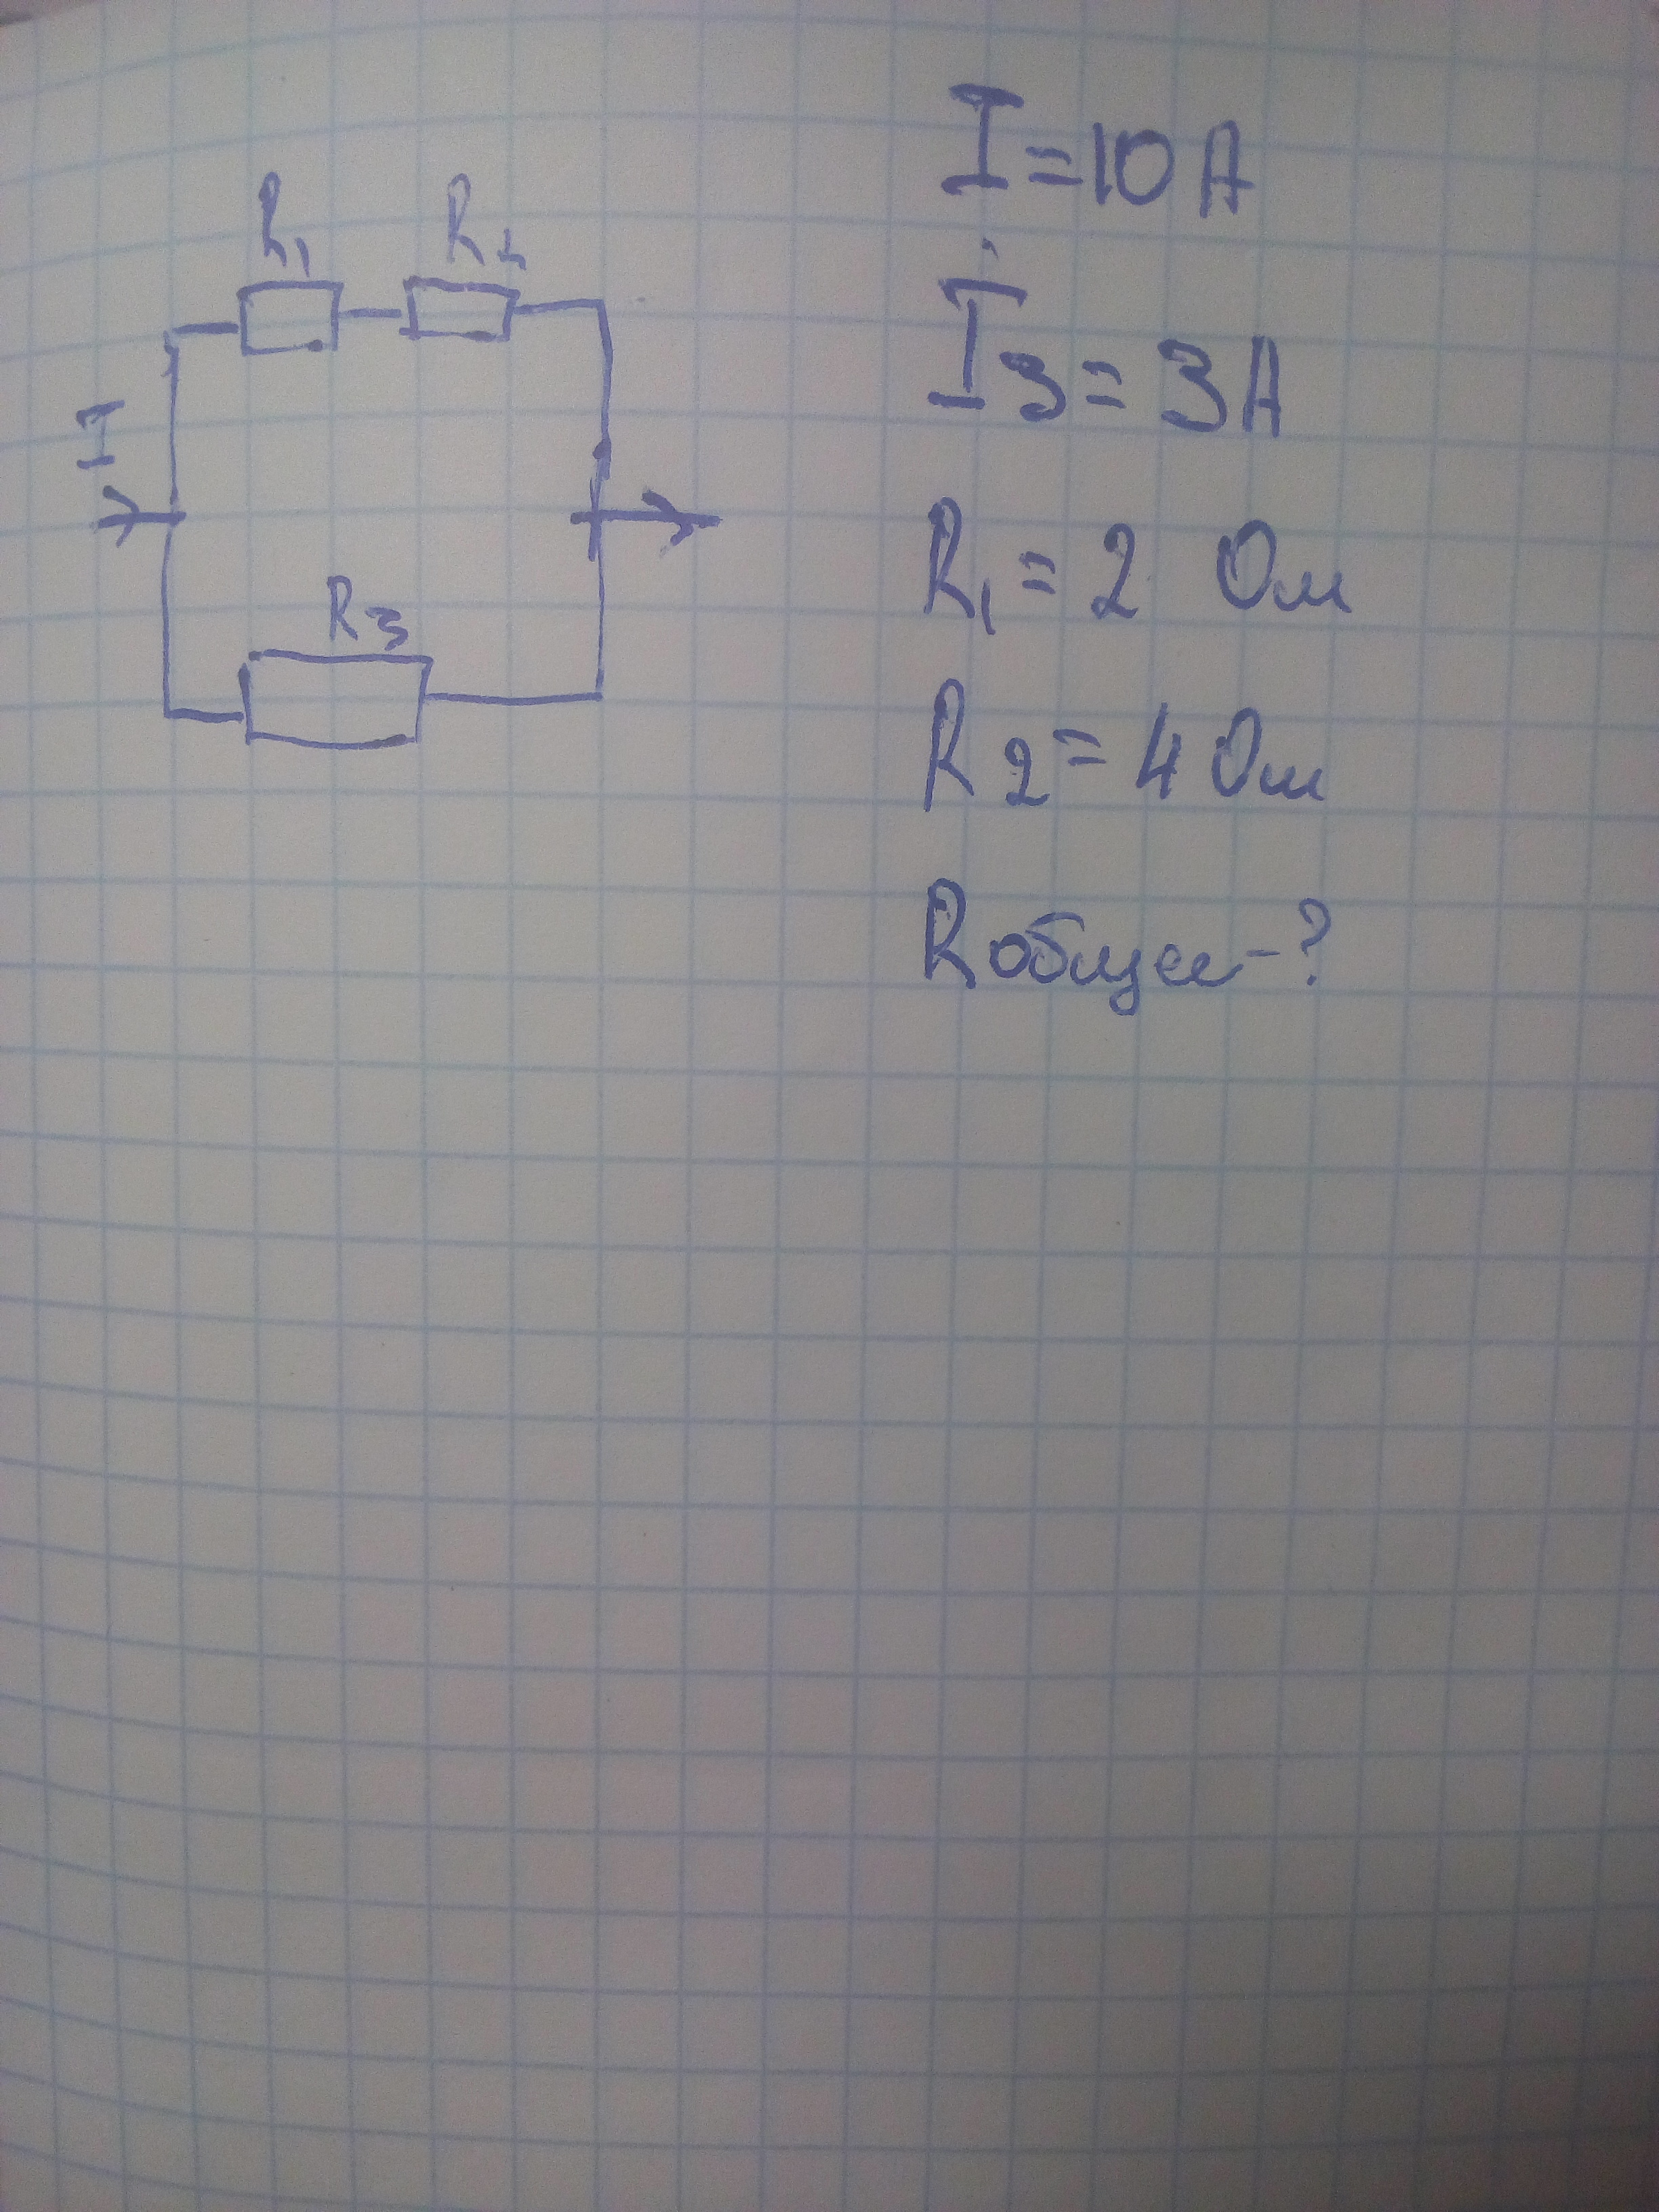 R1 R2
I
R3
I = 10 A
I3 = 3A
R1 = 2 Ом
R2 = 4 Ом
Rобщее - ?